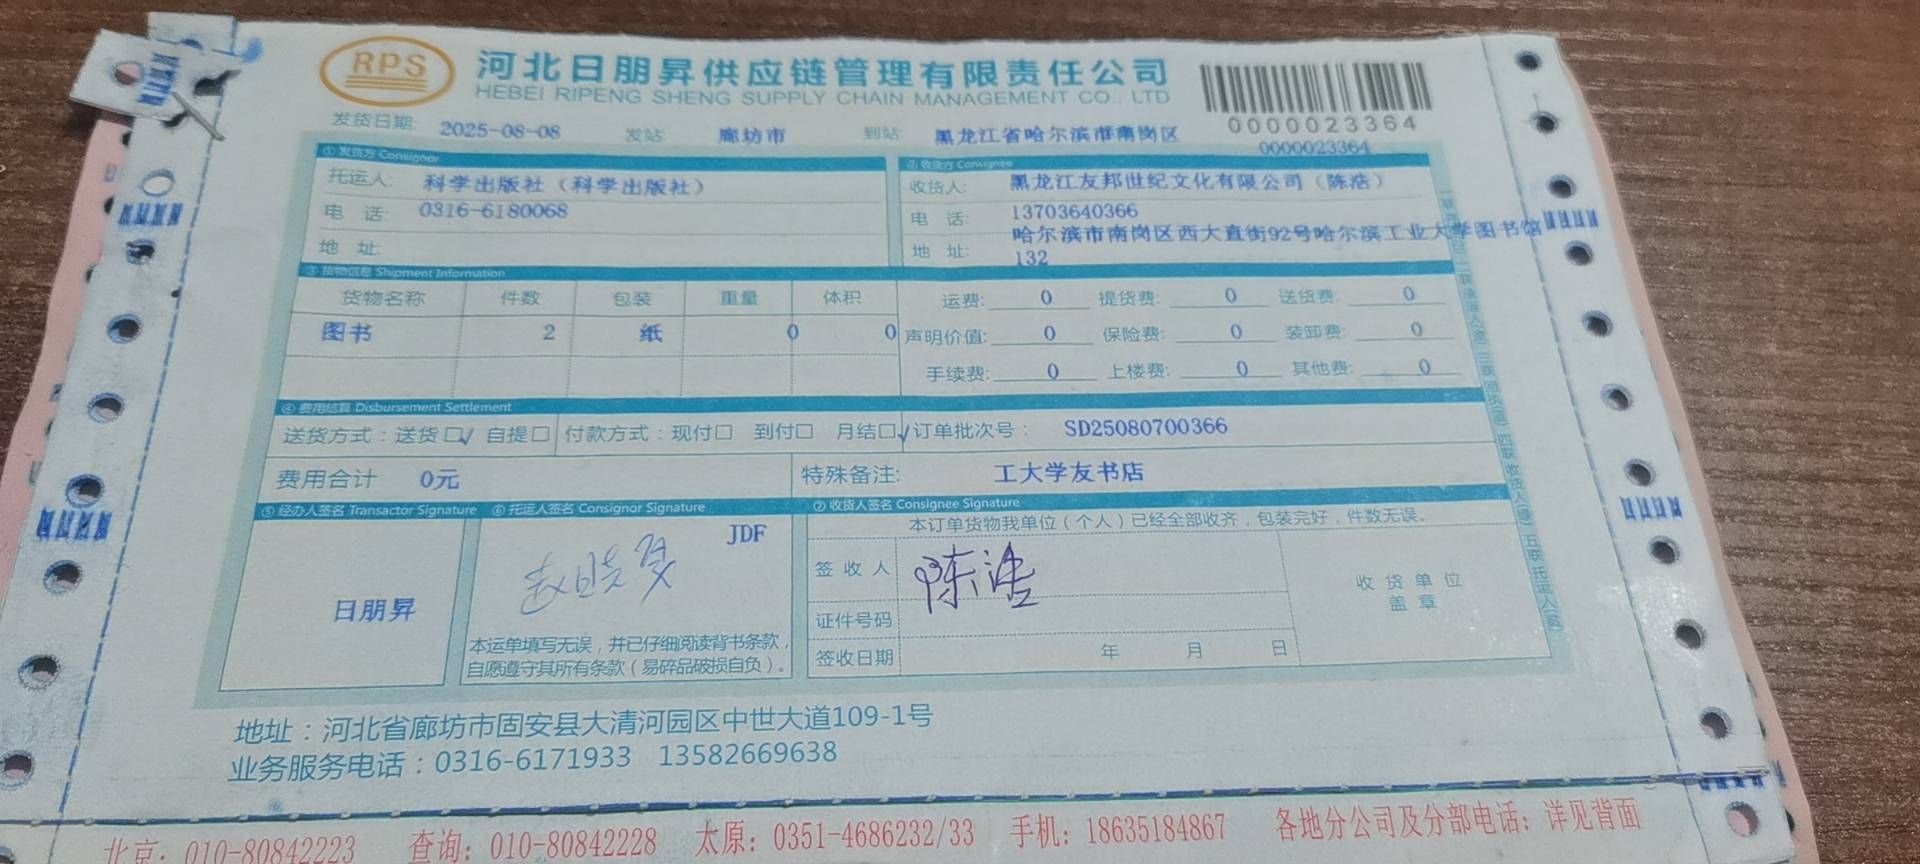 RPS
河北日朋昇供应链管理有限责任公司
HEBEI RIPENG SHENG SUPPLY CHAIN MANAGEMENT CO., LTD
0000023364
发货日期: 2025-08-08 发站: 廊坊市 到站: 黑龙江省哈尔滨市南岗区
0000023364
①发货方 Consignor ②收货方 Consignee
托运人: 科学出版社（科学出版社） 收货人: 黑龙江友邦世纪文化有限公司（陈浩）
电 话: 0316-6180068 电 话: 13703640366
地 址: 地 址: 哈尔滨市南岗区西大直街92号哈尔滨工业大学图书馆
132
③货物信息 Shipment Information
货物名称 件数 包装 重量 体积 运费: 0 提货费: 0 送货费: 0
图书 2 纸 0 0 声明价值: 0 保险费: 0 装卸费: 0
手续费: 0 上楼费: 0 其他费: 0
④费用结算 Disbursement Settlement
送货方式：送货□√ 自提□ 付款方式：现付□ 到付□ 月结□√ 订单批次号： SD25080700366
费用合计 0元 特殊备注: 工大学友书店
⑤经办人签名 Transactor Signature ⑥托运人签名 Consignor Signature ⑦收货人签名 Consignee Signature
本订单货物我单位（个人）已经全部收齐，包装完好，件数无误。
JDF
签收人 陈浩
收货单位
盖章
日朋昇
证件号码
本运单填写无误，并已仔细阅读背书条款，
自愿遵守其所有条款（易碎品破损自负）。
签收日期 年 月 日
地址：河北省廊坊市固安县大清河园区中世大道109-1号
业务服务电话：0316-6171933 13582669638
北京: 010-80842223 查询: 010-80842228 太原: 0351-4686232/33 手机: 18635184867 各地分公司及分部电话: 详见背面